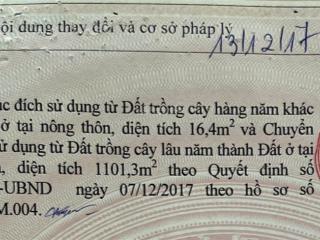 ội dung thay đổi và cơ sở pháp lý
13/12/17
ục đích sử dụng từ Đất trồng cây hàng năm khác
ở tại nông thôn, diện tích 16,4m² và Chuyển
sử dụng từ Đất trồng cây lâu năm thành Đất ở tại
, diện tích 1101,3m² theo Quyết định số
-UBND ngày 07/12/2017 theo hồ sơ số
M.004.